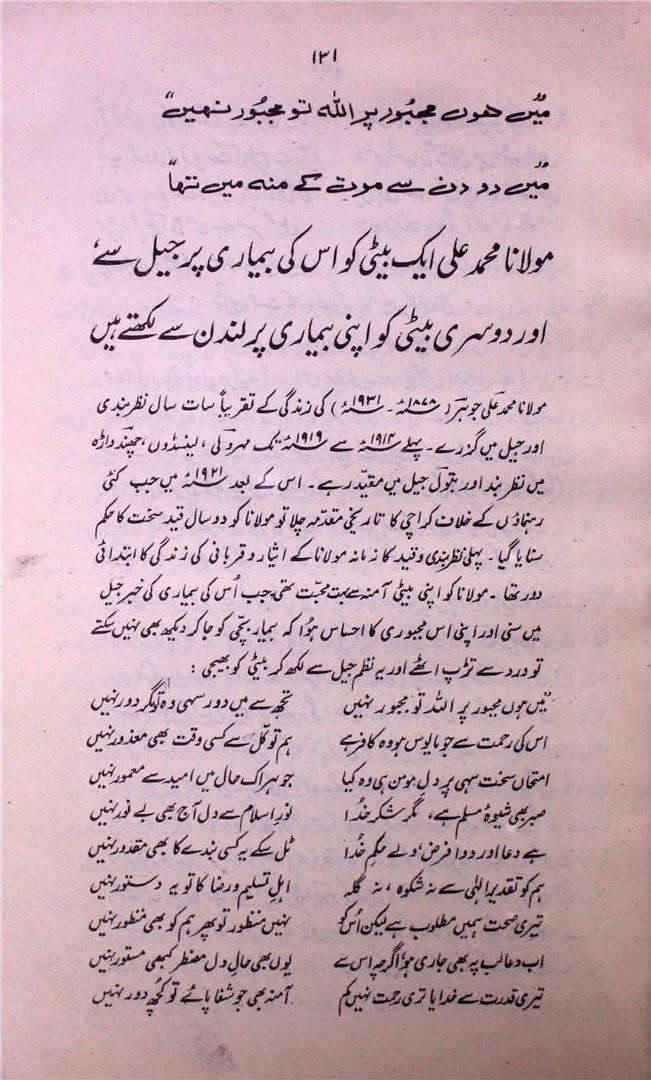 ۱۳۱
"میں ہوں مجبور پر اللہ تو مجبور نہیں"
"میں دو دن سے موت کے منہ میں تھا"
مولانا محمد علی ایک بیٹی کو اس کی بیماری پر جیل سے،
اور دوسری بیٹی کو اپنی بیماری پر لندن سے لکھتے ہیں
مولانا محمد علی جوہر (۱۸۷۸ء ۔ ۱۹۳۱ء) کی زندگی کے تقریباً سات سال نظر بندی
اور جیل میں گزرے۔ پہلے ۱۹۱۴ء سے ۱۹۱۹ء تک مہرولی، لینسڈون، چھندواڑہ
میں نظر بند اور بیتول جیل میں مقید رہے۔ اس کے بعد ۱۹۲۱ء میں جب کئی
رہنماؤں کے خلاف کراچی کا تاریخی مقدمہ چلا تو مولانا کو دو سال قید سخت کا حکم
سنایا گیا۔ پہلی نظر بندی و قید کا زمانہ مولانا کے ایثار و قربانی کی زندگی کا ابتدائی
دور تھا۔ مولانا کو اپنی بیٹی آمنہ سے بہت محبت تھی جب اُس کی بیماری کی خبر جیل
میں سنی اور اپنی اس مجبوری کا احساس ہوا کہ بیمار بچی کو جا کر دیکھ بھی نہیں سکتے
تو درد سے تڑپ اٹھے اور یہ نظم جیل سے لکھ کر بیٹی کو بھیجی :
"میں ہوں مجبور پر اللہ تو مجبور نہیں تجھ سے میں دور سہی وہ تو مگر دور نہیں
اس کی رحمت سے جو مایوس ہو وہ کافر ہے ہم تو کل سے کسی وقت بھی معذور نہیں
امتحاں سخت سہی پر دل مومن ہی وہ کیا جو ہر اک حال میں امید سے معمور نہیں
صبر بھی شیوۂ مسلم ہے، مگر شکر خُدا نور اسلام سے دل آج بھی بے نور نہیں
ہے دعا اور دوا فرض، ولے حکم خُدا ٹل سکے یہ کسی بندے کا بھی مقدور نہیں
ہم کو تقدیر الٰہی سے نہ شکوہ، نہ گلہ اہل تسلیم و رضا کا تو یہ دستور نہیں
تیری صحت ہمیں مطلوب ہے لیکن اُس کو نہیں منظور تو پھر ہم کو بھی منظور نہیں
اب دعا لب پہ بھی جاری ہو اگرچہ اس سے یوں بھی حال دل مضطر کبھی مستور نہیں
تیری قدرت سے خدایا تری رحمت نہیں کم آمنہ بھی جو شفا پائے تو کچھ دور نہیں